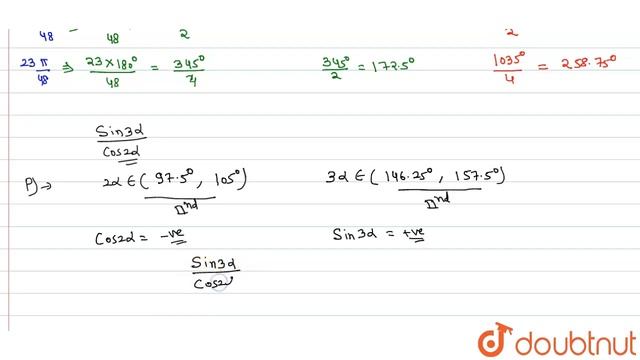 48 = 48 2 2
23π/48 ⇒ 23×180°/48 = 345°/4 345°/2 = 172.5° 1035°/4 = 258.75°
Sin3α/Cos2α
P)→ 2α ∈ (97.5°, 105°) 3α ∈ (146.25°, 157.5°)
IInd IInd
Cos2α = -ve Sin3α = +ve
Sin3α/Cos2
doubtnut